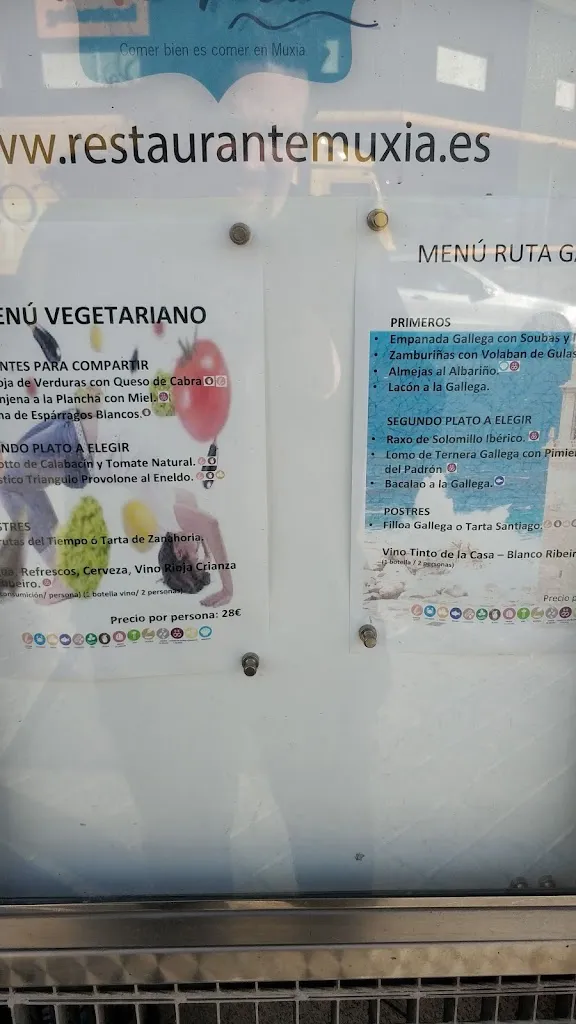 Comer bien es comer en Muxia
ww.restaurantemuxia.es
ENÚ VEGETARIANO
NTES PARA COMPARTIR
oja de Verduras con Queso de Cabra
njena a la Plancha con Miel.
na de Espárragos Blancos.
NDO PLATO A ELEGIR
otto de Calabacín y Tomate Natural.
stico Triangulo Provolone al Eneldo.
STRES
rutas del Tiempo ó Tarta de Zanahoria.
ua, Refrescos, Cerveza, Vino Rioja Crianza
ibeiro.
(1 botella vino/ 2 personas)
Precio por persona: 28€
MENÚ RUTA GA
PRIMEROS
• Empanada Gallega con Soubas y
• Zamburiñas con Volaban de Gulas
• Almejas al Albariño.
• Lacón a la Gallega.
SEGUNDO PLATO A ELEGIR
• Raxo de Solomillo Ibérico.
• Lomo de Ternera Gallega con Pimie
del Padrón
• Bacalao a la Gallega.
POSTRES
• Filloa Gallega o Tarta Santiago.
Vino Tinto de la Casa – Blanco Ribeir
(1 botella/ 2 personas)
Precio p